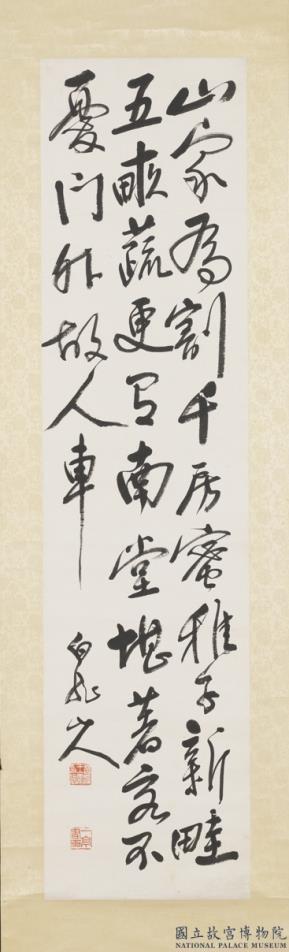 山家為割千房蜜稚子新畦
五畝蔬更有南堂堪著客不
憂門外故人車
白龍山人
國立故宮博物院
NATIONAL PALACE MUSEUM